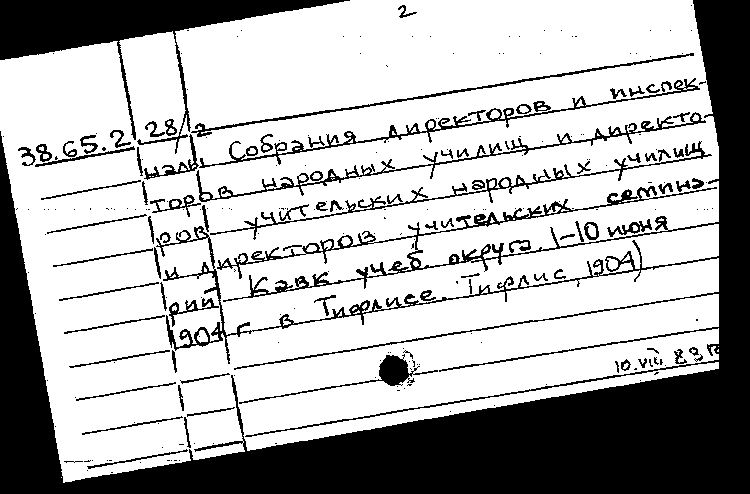 2
38.65.2.28/2
налы Собрания директоров и инспек-
торов народных училищ и директо-
ров учительских народных училищ
и директоров учительских семина-
рий Кавк. учеб. округа. 1-10 июня
1904 г. в Тифлисе. Тифлис, 1904)
10.VIII 83